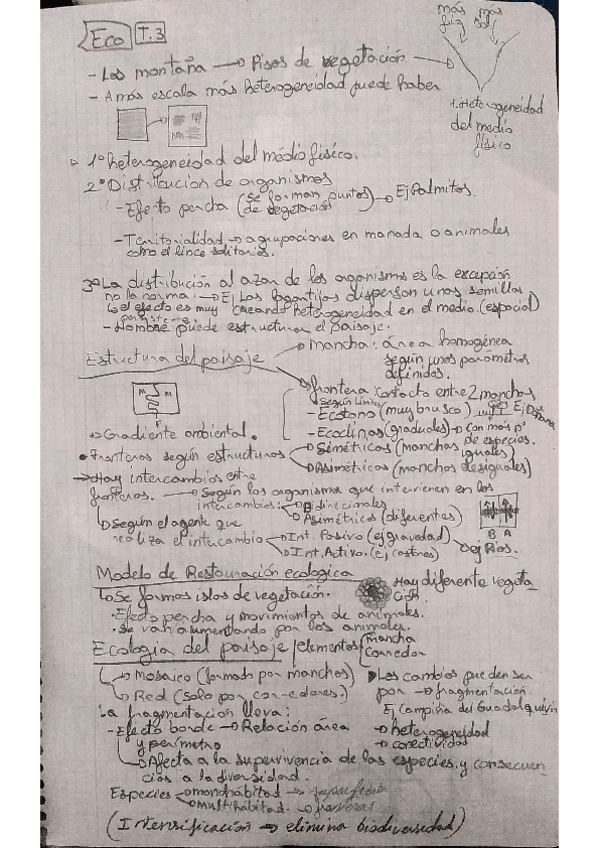 Eco T.3
más frío más sol
- Las montaña → Pisos de vegetación →
- A más escala más heterogeneidad puede haber
1. Heterogeneidad del medio físico
1º heterogeneidad del médio físico.
2º Distribución de organismos
- Efecto percha (se forman puntos de vegetación) → Ej Palmitos.
- Territorialidad → agrupaciones en manada o animales
como el lince solitarios.
3º La distribución al azar de los organismos es la excepción
no la norma. → Ej Las lagartijas dispersan unas semillas
↳ el efecto es muy persistente. creando heterogeneidad en el medio. (espacial)
- Hombre puede estructurar el paisaje.
Estructura del paisaje → mancha: área homogénea
según unos parámetros
definidos.
→ frontera: contacto entre 2 manchas
según límite
- Ecotono (muy brusco)
- Ecoclinas (graduales) → con más nº de especies.
M M
F
• Gradiente ambiental.
• Fronteras según estructuras → Simétricas (manchas iguales)
→ Asimétricas (manchas desiguales)
→ Hay intercambios entre
fronteras. → Según los organismo que intervienen en los
intercambios: → Bidirecionales
→ Asimétricos (diferentes)
B A
↳ Según el agente que
realiza el intercambio → Int. Pasivo (ej gravedad)
→ Int. Activo. (ej castores) → ej Rios.
Modelo de Restauración ecologica
↳ Se formas islas de vegetación.
→ Hay diferente vegetación.
• Efecto percha y movimientos de animales.
• Se van aumentando por los animales.
Ecologia del paisaje / elementos mancha
corredor
→ Mosaico (formado por manchas)
→ Red (solo por corredores.)
Los cambios pueden ser
por → fragmentación.
Ej Campiña del Guadalquivir
→ heterogeneidad
→ conectividad
La fragmentación lleva:
- Efecto borde → Relación área
y perimetro
→ Afecta a la supervivencia de las especies. y consecuen
cias a la diversidad.
Especies → monohábitad → superficie
→ multihábitad. → fronteras
(Intensificación → elimina biodiversidad)